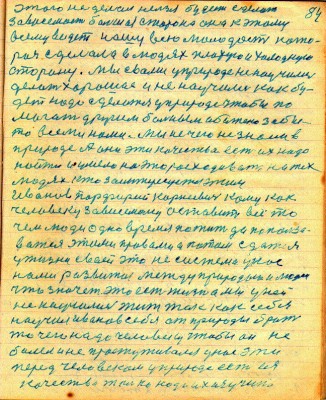 84
этого не делал нечия будет сделат
зависемост большая сторона она к этому
всему ведет нашу всю молодост кото
рая сделала в людях плохую и холодную
сторону. Мы с вами у природе не научилис
делат хорошае и не научилис как бу
дет надо сделатся у природе чтобы по
могат другим больным обижено забы
то всеми нами. Мы нечего не знали в
природе А они эти качества ест их надо
найти и умело на это расходыват на тех
людях кто заинтересуется этим
Иванов Порфирий Корнеевич кому как
человеку зависемому оставит всё то
чем люди одно время пожит да попользо
ватся этими правами а потом сдатся
у жизни своей это не система у нас
нами развитая между природой и людми
что значет это ест жизня мы у ней
не научилис жит так как себя
научил Иванов себя от природы брат
то чего надо человеку чтобы он не
болел и не простуживался у нас эти
перед человеком у природе ест ия
качества только надо их изучит